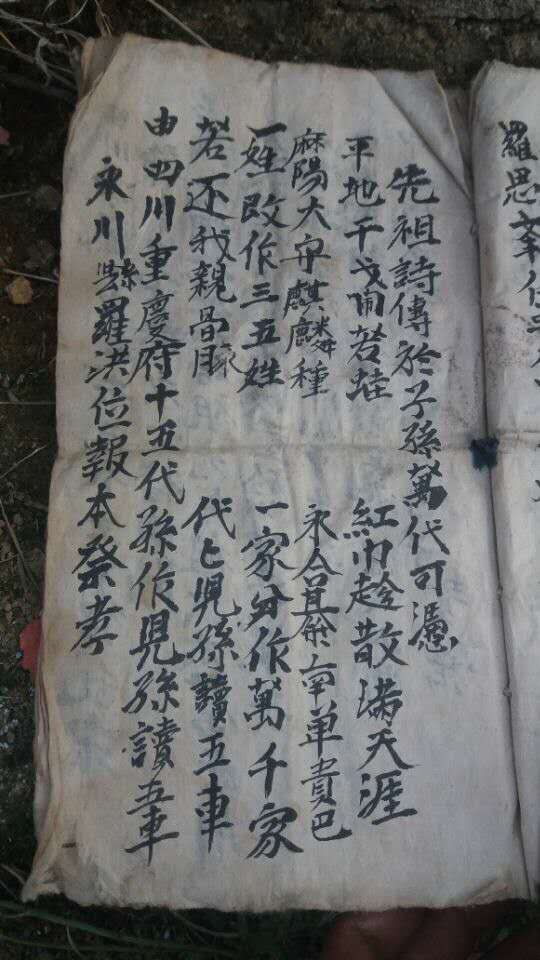 羅思
先祖詩傳於子孫萬代可憑
平地干戈鬧若蛙　紅巾趁散滿天涯
麻陽大守麒麟種　永合南單貴巴
一姓改作三五姓　一家分作萬千家
若还我親骨　代匕児孫讀五車
由四川重慶府十五代孫作児孫讀五車
永川縣羅洪位報本祭孝